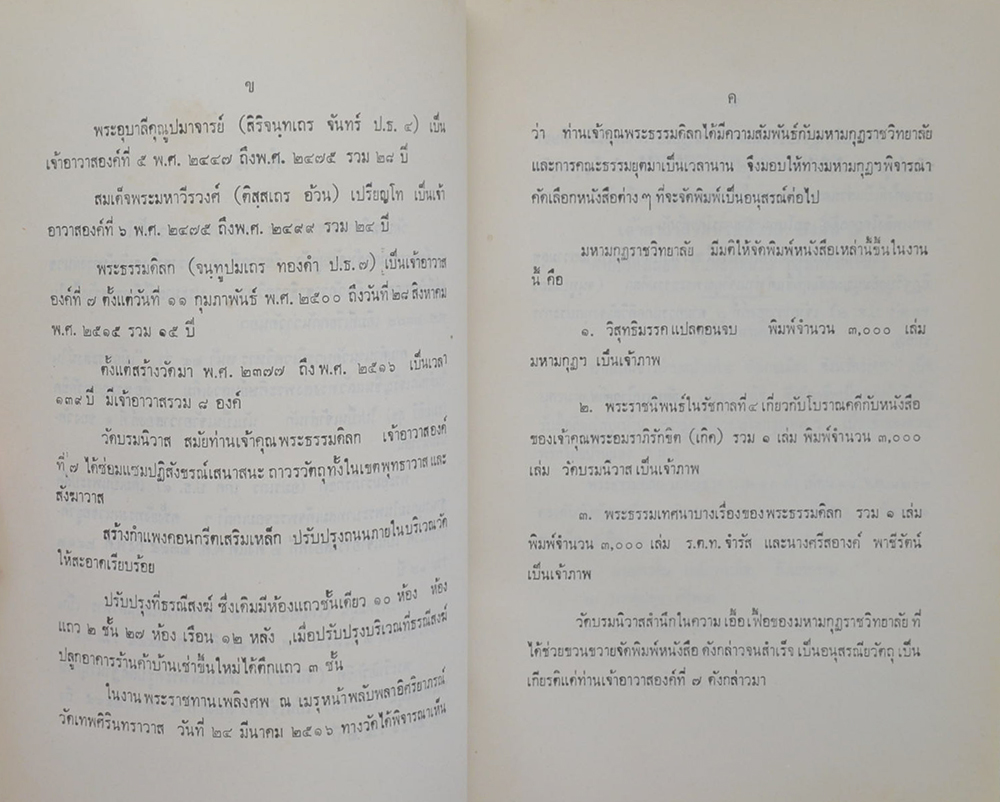 ข
พระอุบาลีคุณูปมาจารย์ (สิริจนฺทเถร จันทร์ ป.ธ. ๔) เป็น
เจ้าอาวาสองค์ที่ ๕ พ.ศ. ๒๔๔๗ ถึงพ.ศ. ๒๔๗๕ รวม ๒๘ ปี
สมเด็จพระมหาวีรวงศ์ (ติสฺสเถร อ้วน) เปรียญโท เป็นเจ้า
อาวาสองค์ที่ ๖ พ.ศ. ๒๔๗๕ ถึงพ.ศ. ๒๔๙๙ รวม ๒๔ ปี
พระธรรมดิลก (จนฺทูปมเถร ทองดำ ป.ธ.๗) เป็นเจ้าอาวาส
องค์ที่ ๗ ตั้งแต่วันที่ ๑๑ กุมภาพันธ์ พ.ศ. ๒๕๐๐ ถึงวันที่ ๒๘ สิงหาคม
พ.ศ. ๒๕๑๕ รวม ๑๕ ปี
ตั้งแต่สร้างวัดมา พ.ศ. ๒๓๗๗ ถึงพ.ศ. ๒๕๑๖ เป็นเวลา
๑๓๙ ปี มีเจ้าอาวาสรวม ๘ องค์
วัดบรมนิวาส สมัยท่านเจ้าคุณพระธรรมดิลก เจ้าอาวาสองค์
ที่ ๗ ได้ซ่อมแซมปฏิสังขรณ์เสนาสนะ ถาวรวัตถุทั้งในเขตพุทธาวาส และ
สังฆาวาส
สร้างกำแพงคอนกรีตเสริมเหล็ก ปรับปรุงถนนภายในบริเวณวัด
ให้สะอาดเรียบร้อย
ปรับปรุงที่ธรณีสงฆ์ ซึ่งเดิมมีห้องแถวชั้นเดียว ๑๐ ห้อง ห้อง
แถว ๒ ชั้น ๒๗ ห้อง เรือน ๑๒ หลัง เมื่อปรับปรุงบริเวณที่ธรณีสงฆ์
ปลูกอาคารร้านค้าบ้านเช่าขึ้นใหม่ได้ตึกแถว ๓ ชั้น
ในงานพระราชทานเพลิงศพ ณ เมรุหน้าพลับพลาอิศริยาภรณ์
วัดเทพศิรินทราวาส วันที่ ๒๔ มีนาคม ๒๕๑๖ ทางวัดได้พิจารณาเห็น
ค
ว่า ท่านเจ้าคุณพระธรรมดิลกได้มีความสัมพันธ์กับมหามกุฏราชวิทยาลัย
และการคณะธรรมยุตมาเป็นเวลานาน จึงมอบให้ทางมหามกุฏฯพิจารณา
คัดเลือกหนังสือต่าง ๆ ที่จะจัดพิมพ์เป็นอนุสรณ์ต่อไป
มหามกุฏราชวิทยาลัย มีมติให้จัดพิมพ์หนังสือเหล่านี้ขึ้นในงาน
นี้ คือ
๑. วิสุทธิมรรค แปลตอนจบ พิมพ์จำนวน ๓,๐๐๐ เล่ม
มหามกุฏฯ เป็นเจ้าภาพ
๒. พระราชนิพนธ์ในรัชกาลที่ ๔ เกี่ยวกับโบราณคดีกับหนังสือ
ของเจ้าคุณพระอมราภิรักขิต (เกิด) รวม ๑ เล่ม พิมพ์จำนวน ๓,๐๐๐
เล่ม วัดบรมนิวาส เป็นเจ้าภาพ
๓. พระธรรมเทศนาบางเรื่องของพระธรรมดิลก รวม ๑ เล่ม
พิมพ์จำนวน ๓,๐๐๐ เล่ม ร.ต.ท. จำรัส และนางศรีสอางค์ พาชีรัตน์
เป็นเจ้าภาพ
วัดบรมนิวาสสำนึกในความ เอื้อเฟื้อของมหามกุฏราชวิทยาลัย ที่
ได้ช่วยขวนขวายจัดพิมพ์หนังสือ ดังกล่าวจนสำเร็จ เป็นอนุสรณียวัตถุ เป็น
เกียรติแด่ท่านเจ้าอาวาสองค์ที่ ๗ ดังกล่าวมา